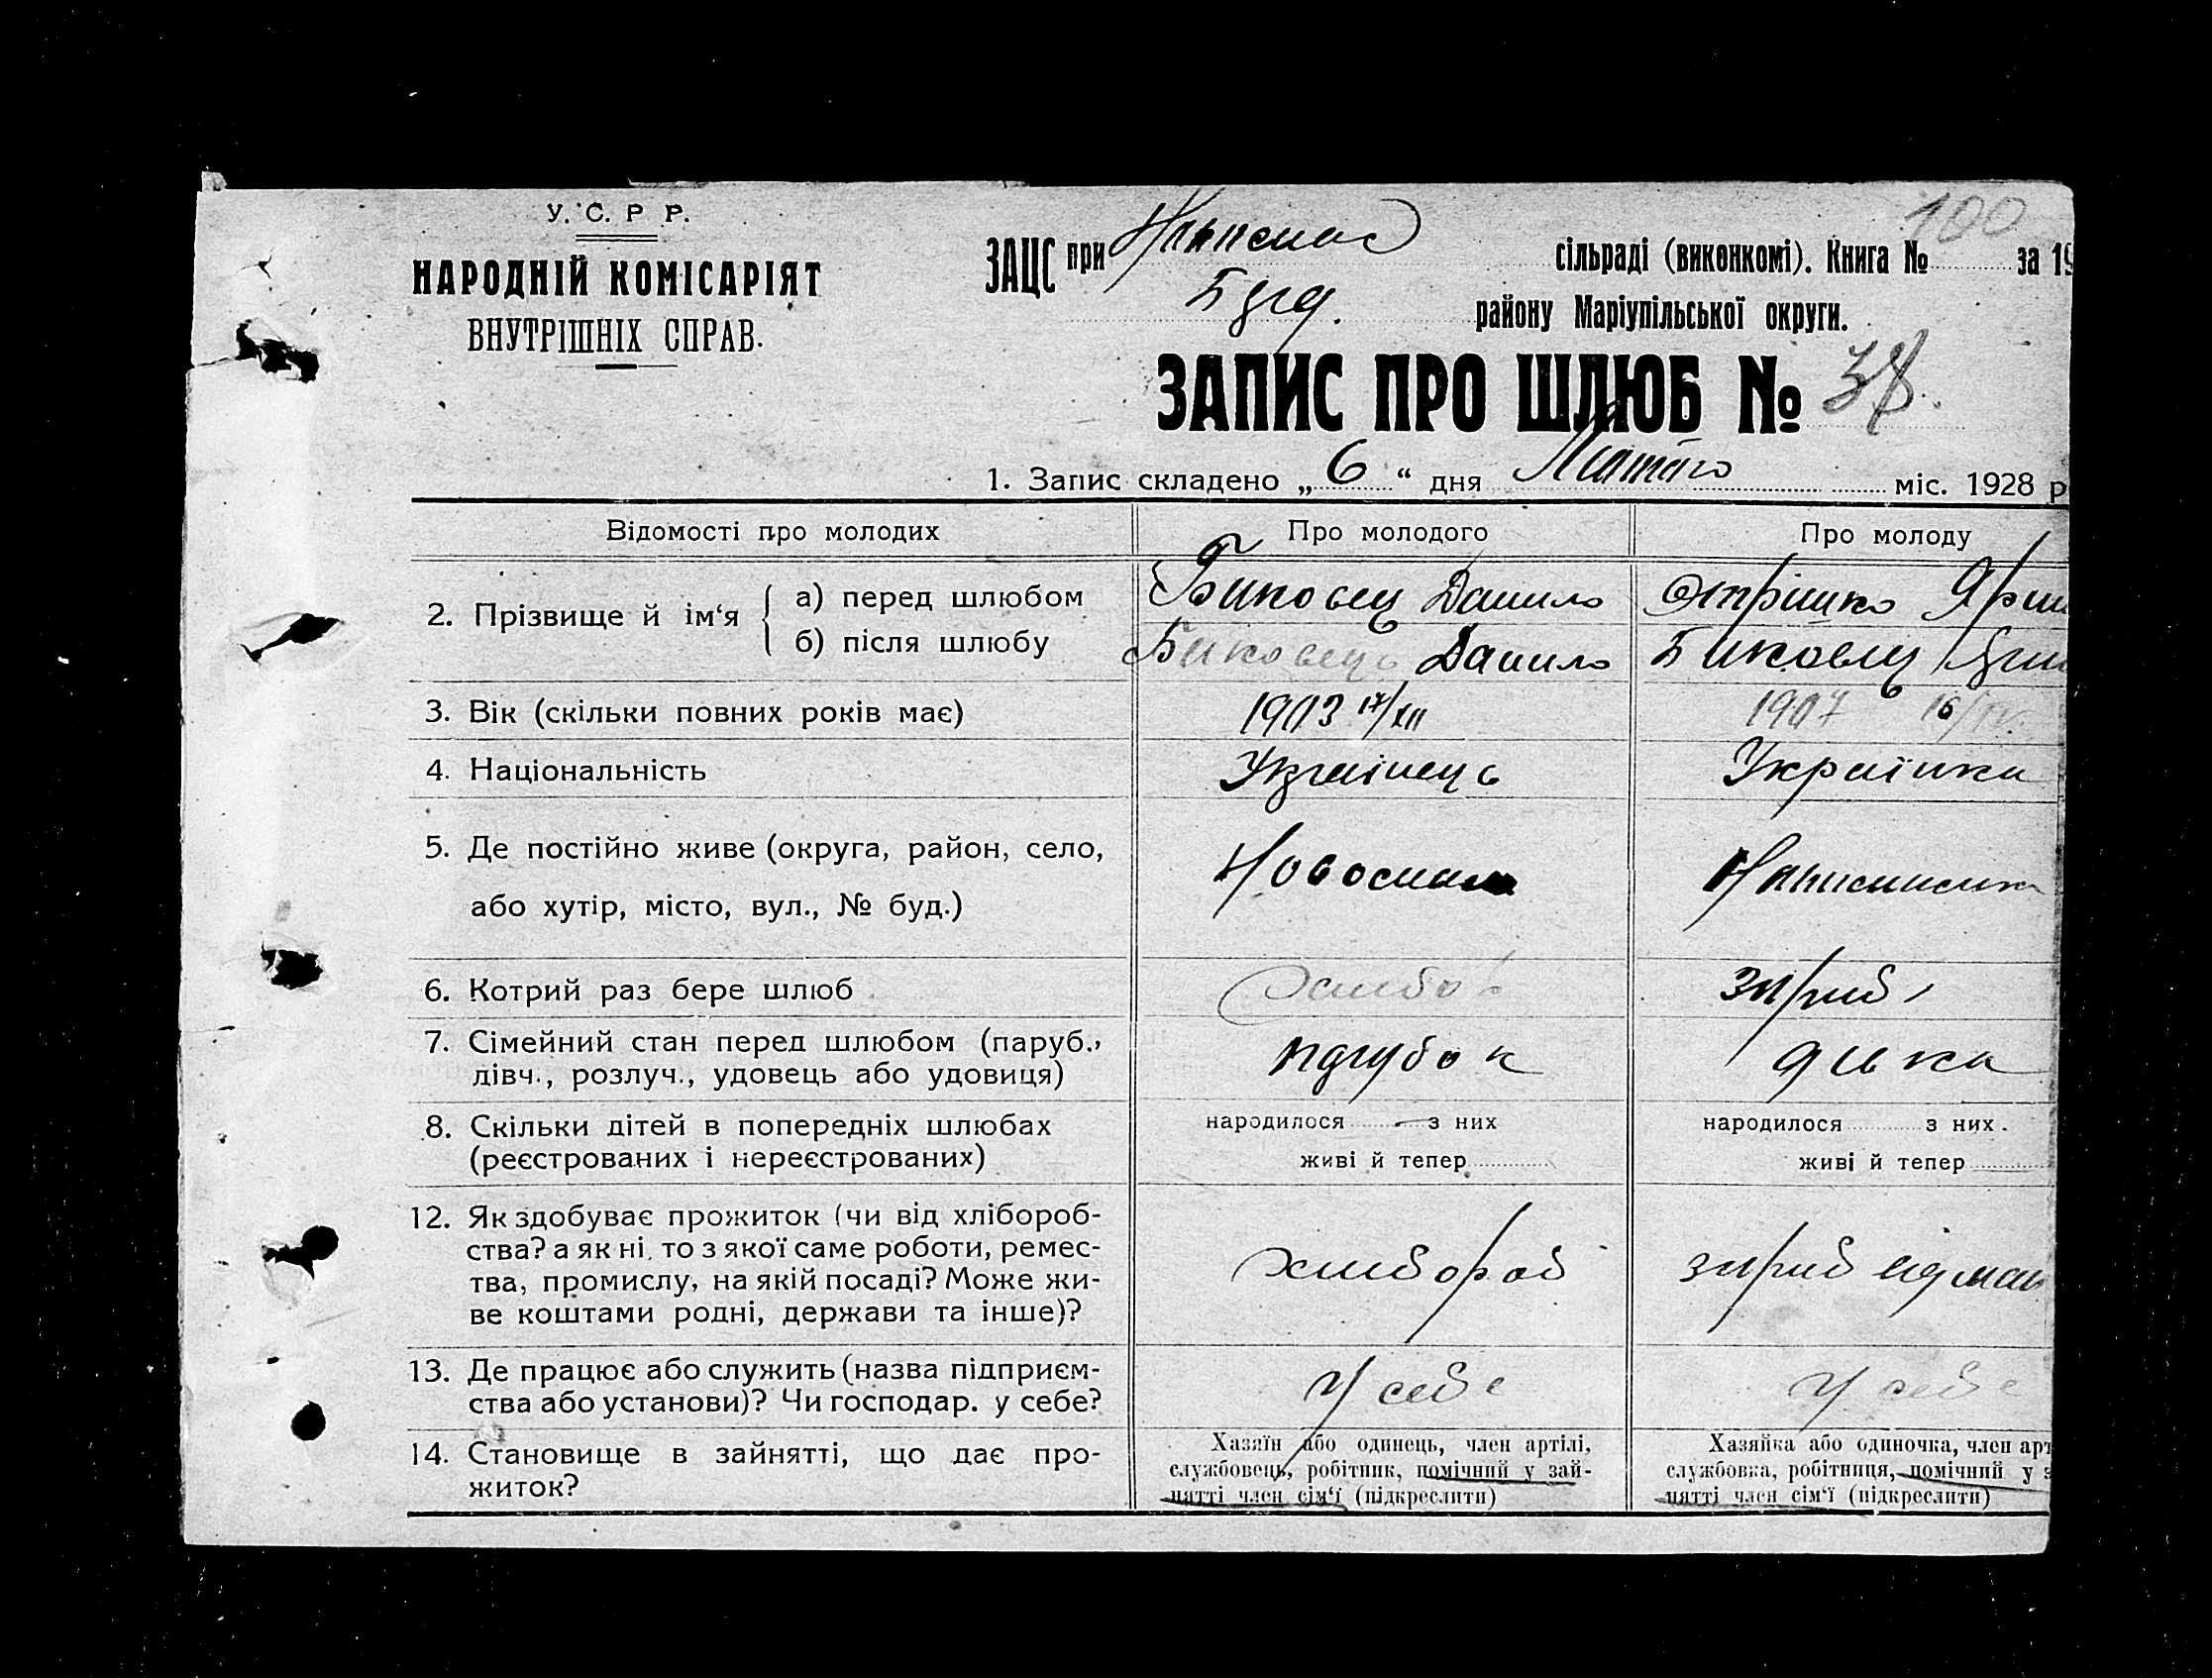 У. С. Р. Р.
НАРОДНІЙ КОМІСАРІЯТ
ВНУТРІШНІХ СПРАВ.
100
ЗАЦС при сільраді (виконкомі). Книга № за 19
району Маріупільської округи.
ЗАПИС ПРО ШЛЮБ № 38
1. Запис складено „ 6 “ дня Лютого міс. 1928 р
Відомості про молодих Про молодого Про молоду
2. Прізвище й ім‘я { а) перед шлюбом Биковец Данило
б) після шлюбу Биковець Данило Биковец
3. Вік (скільки повних років має) 1903 17/XII 1907 16/IV
4. Національність Українець Українка
5. Де постійно живе (округа, район, село,
або хутір, місто, вул., № буд.)
6. Котрий раз бере шлюб
7. Сімейний стан перед шлюбом (паруб., парубок дівка
дівч., розлуч., удовець або удовиця)
8. Скільки дітей в попередніх шлюбах народилося — з них народилося з них
(реєстрованих і нереєстрованих) живі й тепер живі й тепер
12. Як здобуває прожиток (чи від хлібороб-
ства? а як ні, то з якої саме роботи, ремес-
тва, промислу, на якій посаді? Може жи- хлибороб
ве коштами родні, держави та інше)?
13. Де працює або служить (назва підприєм- У себе У себе
ства або установи)? Чи господар. у себе?
14. Становище в зайнятті, що дає про- Хазяїн або одинець, член артілі, Хазяйка або одиночка, член арт
житок? службовець, робітник, помічний у зай- службовка, робітниця, помічний у з
нятті член сім‘ї (підкреслити) нятті член сім‘ї (підкреслити)